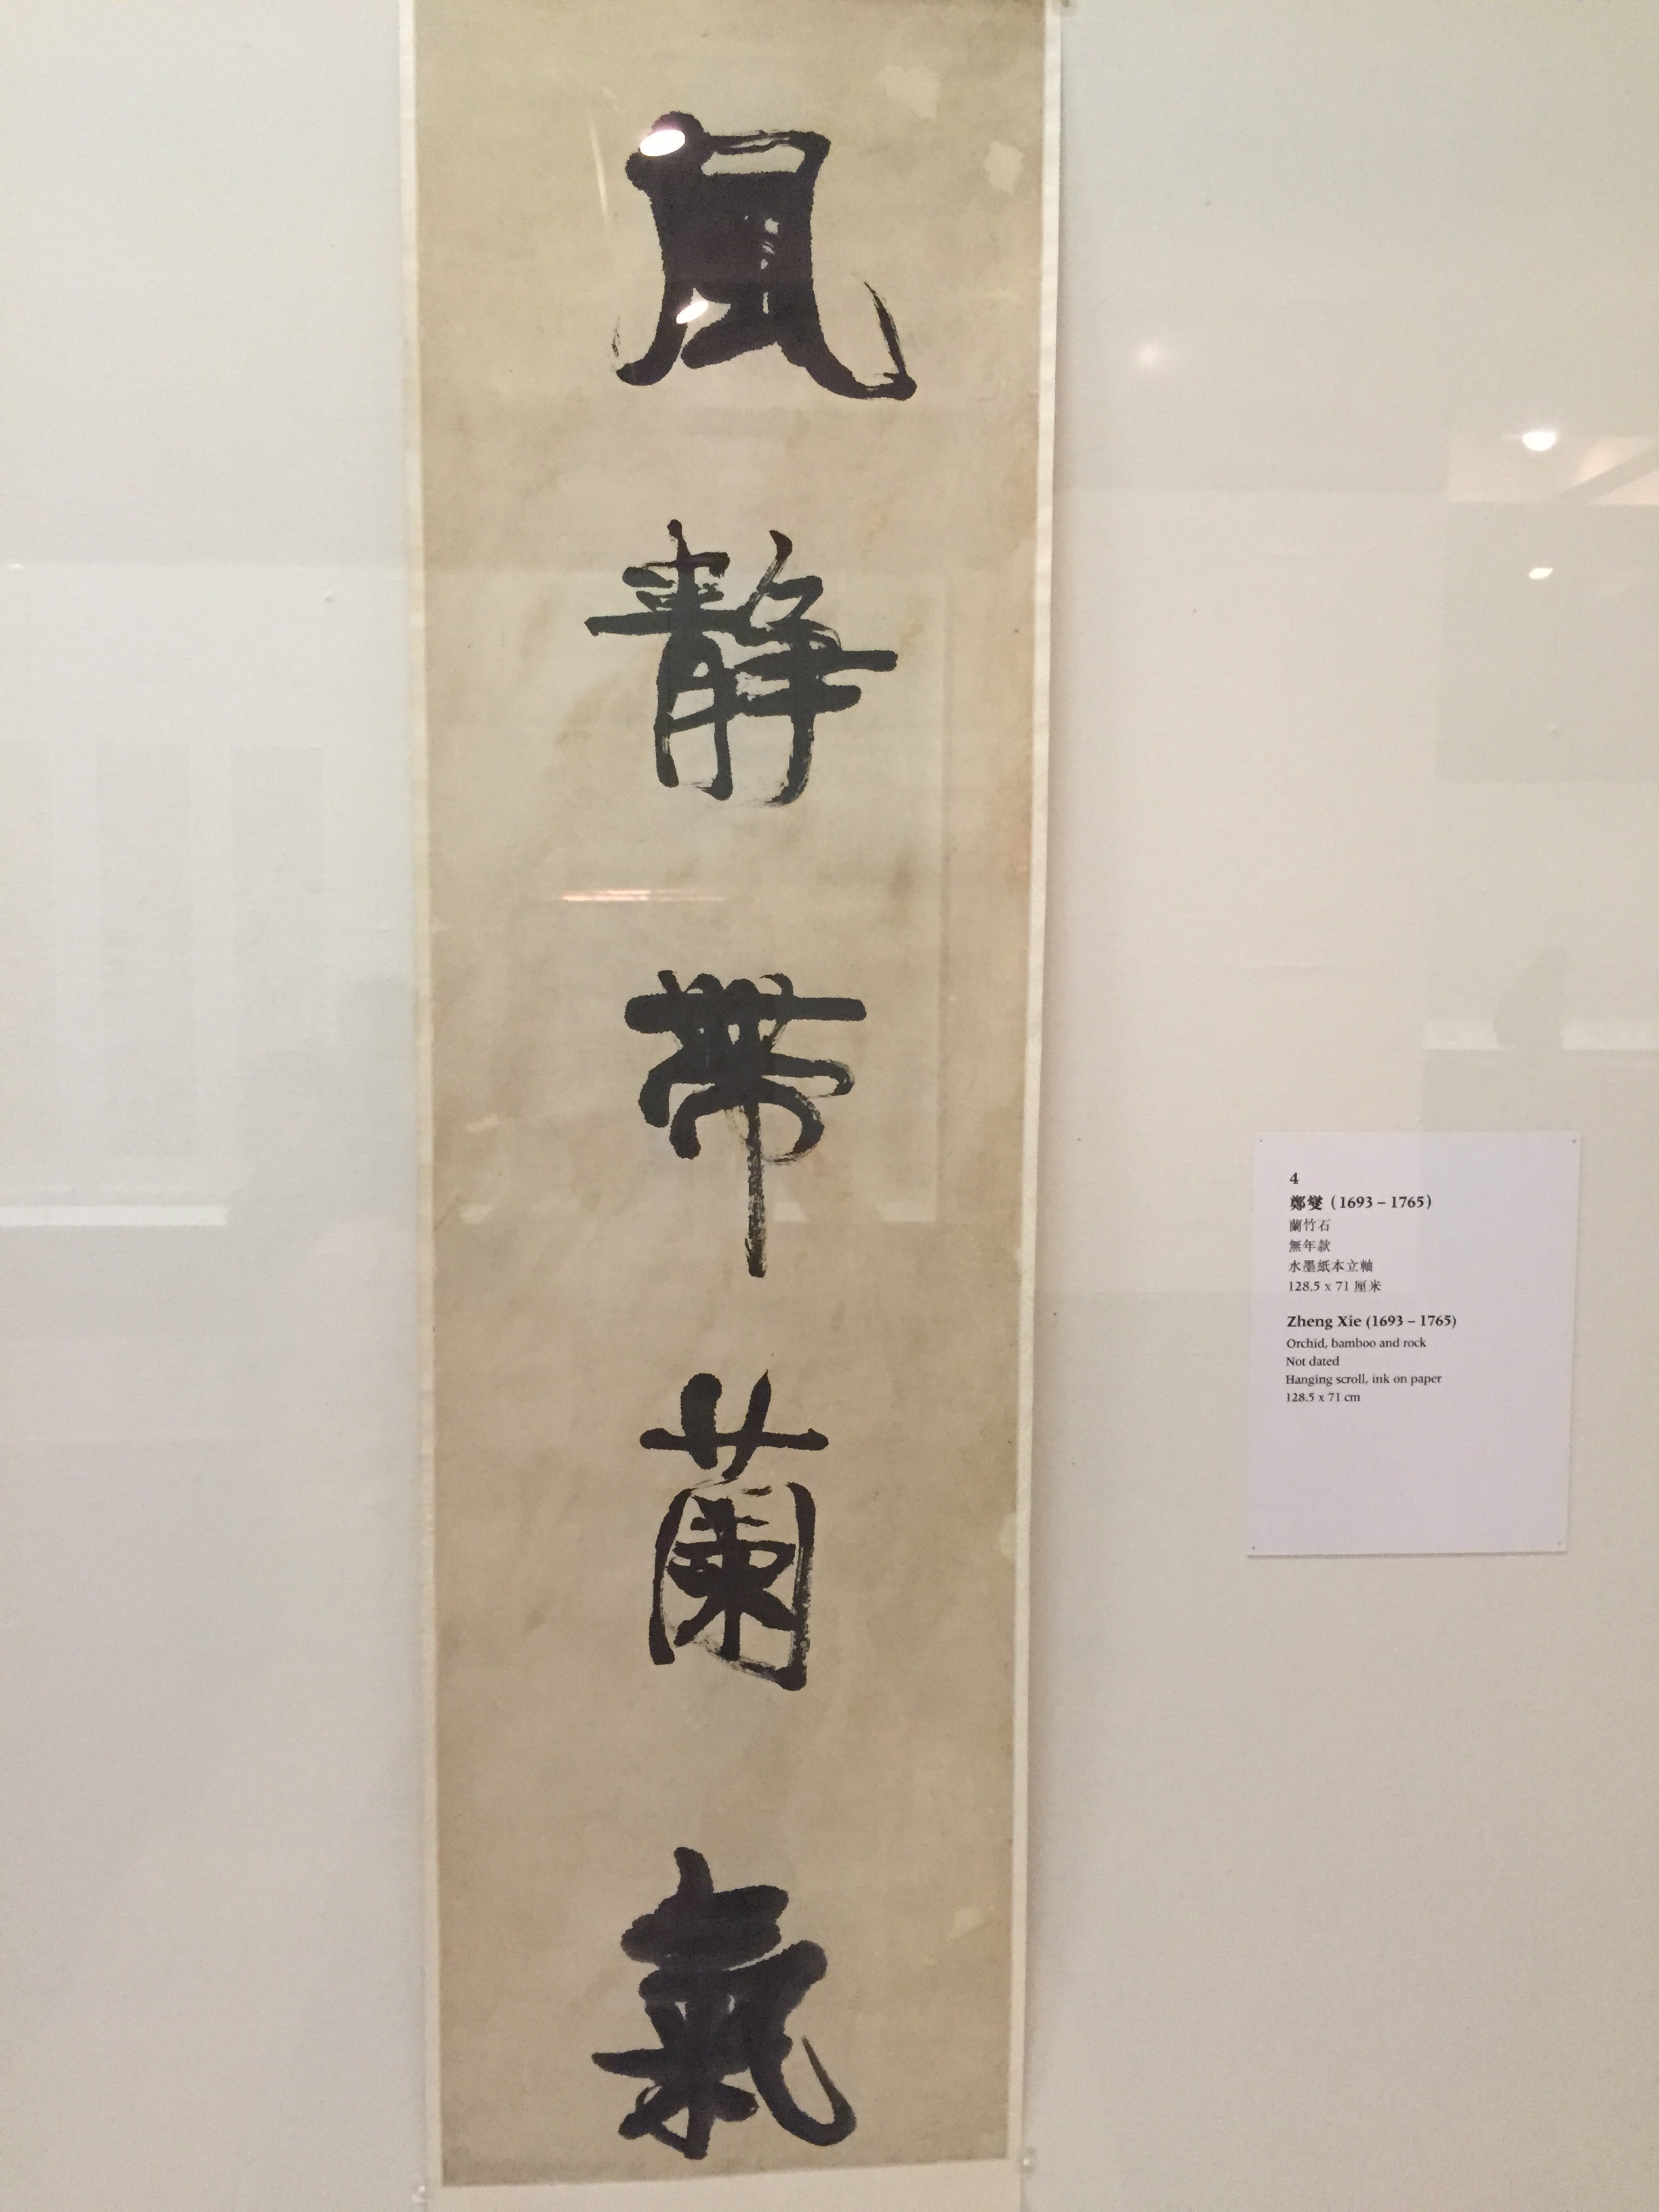 風静帶蘭氣
4
鄭燮 (1693 – 1765)
蘭竹石
無年款
水墨紙本立軸
128.5 x 71 厘米
Zheng Xie (1693 – 1765)
Orchid, bamboo and rock
Not dated
Hanging scroll, ink on paper
128.5 x 71 cm